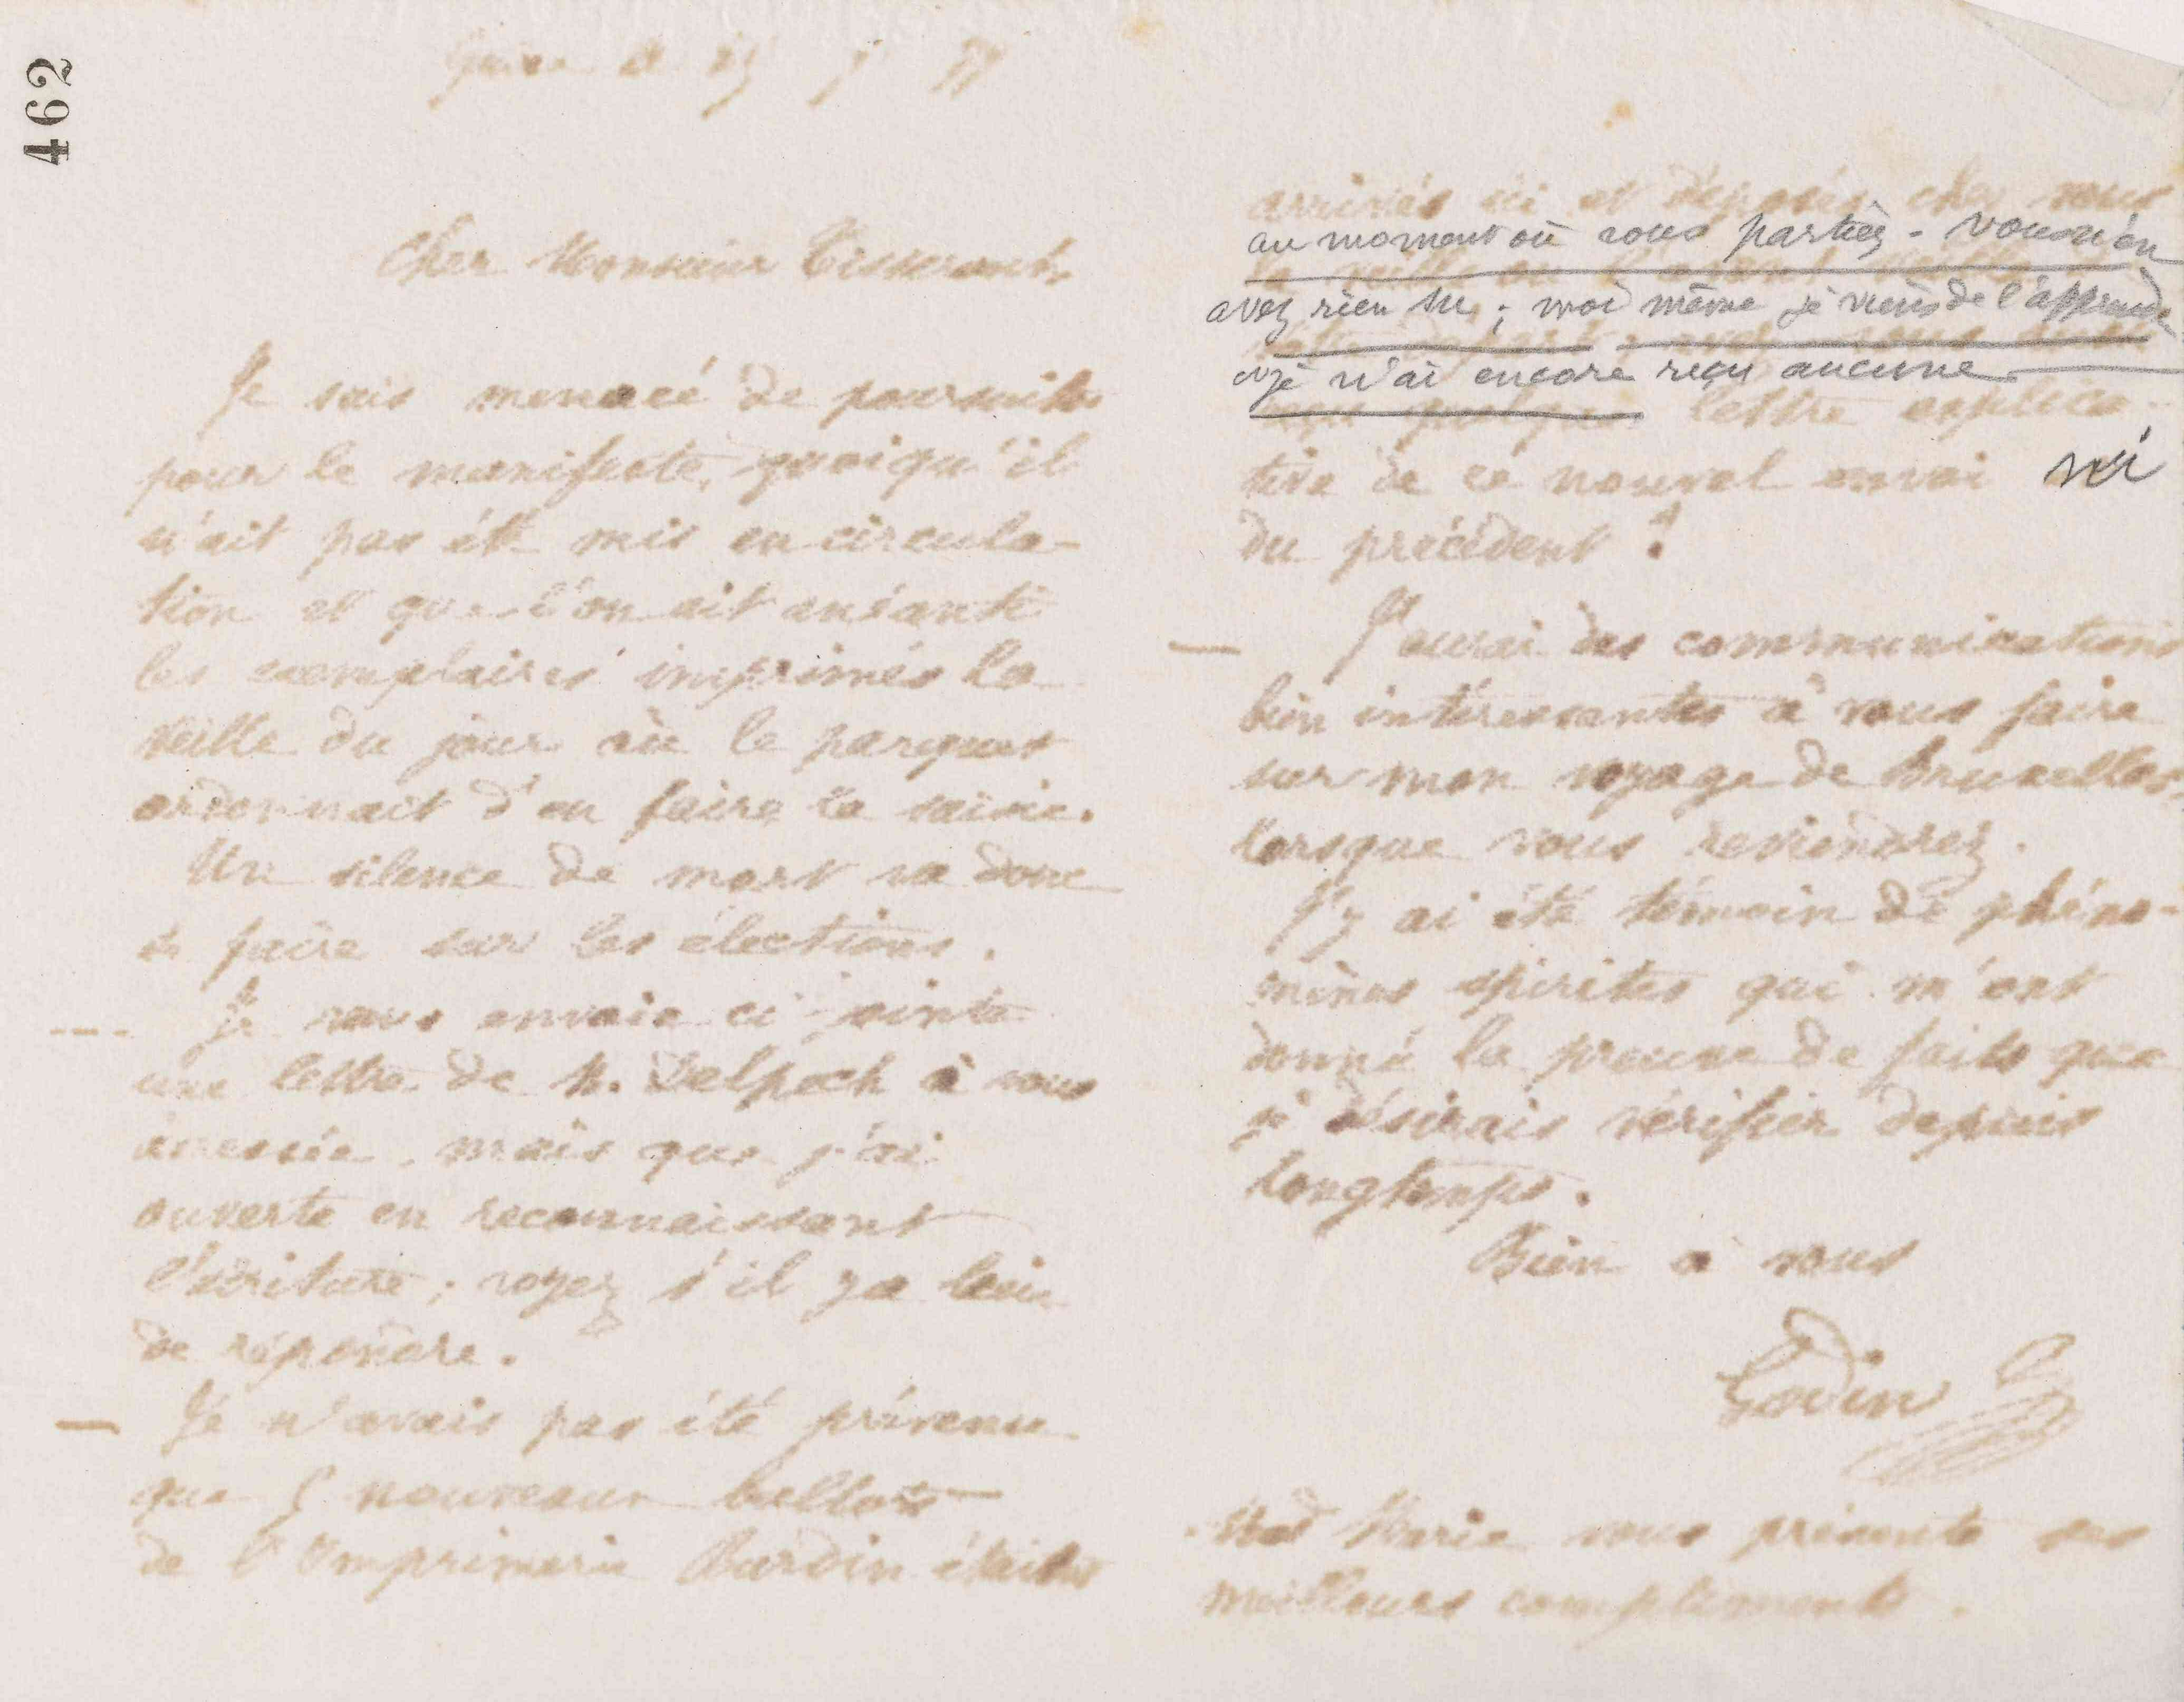 462
Guise le 25 7 77
Cher Monsieur Tisserant
Je suis menacé de poursuites
pour le manifeste, quoiqu'il
n'ait pas été mis en circula-
tion et que l'on ait anéanti
les exemplaires imprimés la
veille du jour où le parquet
ordonnait d'en faire la saisie.
Un silence de mort va donc
se faire sur les élections.
Je vous envoie ci-jointe
une lettre de M. Delpech à vous
adressée, mais que j'ai
ouverte en reconnaissant
l'écriture ; voyez s'il y a lieu
de répondre.
Je n'avais pas été prévenu
que 5 nouveaux ballots
de l'Imprimerie Bardin étaient
arrivés ici et déposés chez vous
au moment où vous partiez - vous n'en
avez rien su ; moi même je viens de l'apprendre
et je n'ai encore reçu aucune
lettre explica-
tive de ce nouvel envoi ni
du précédent !
J'aurai des communications
bien intéressantes à vous faire
sur mon voyage de Bruxelles,
lorsque vous reviendrez.
J'y ai été témoin de phéno-
mènes spirites qui m'ont
donné la preuve de faits que
je désirais vérifier depuis
longtemps.
Bien à vous
Godin
Mad Marie vous présente ses
meilleurs compliments.